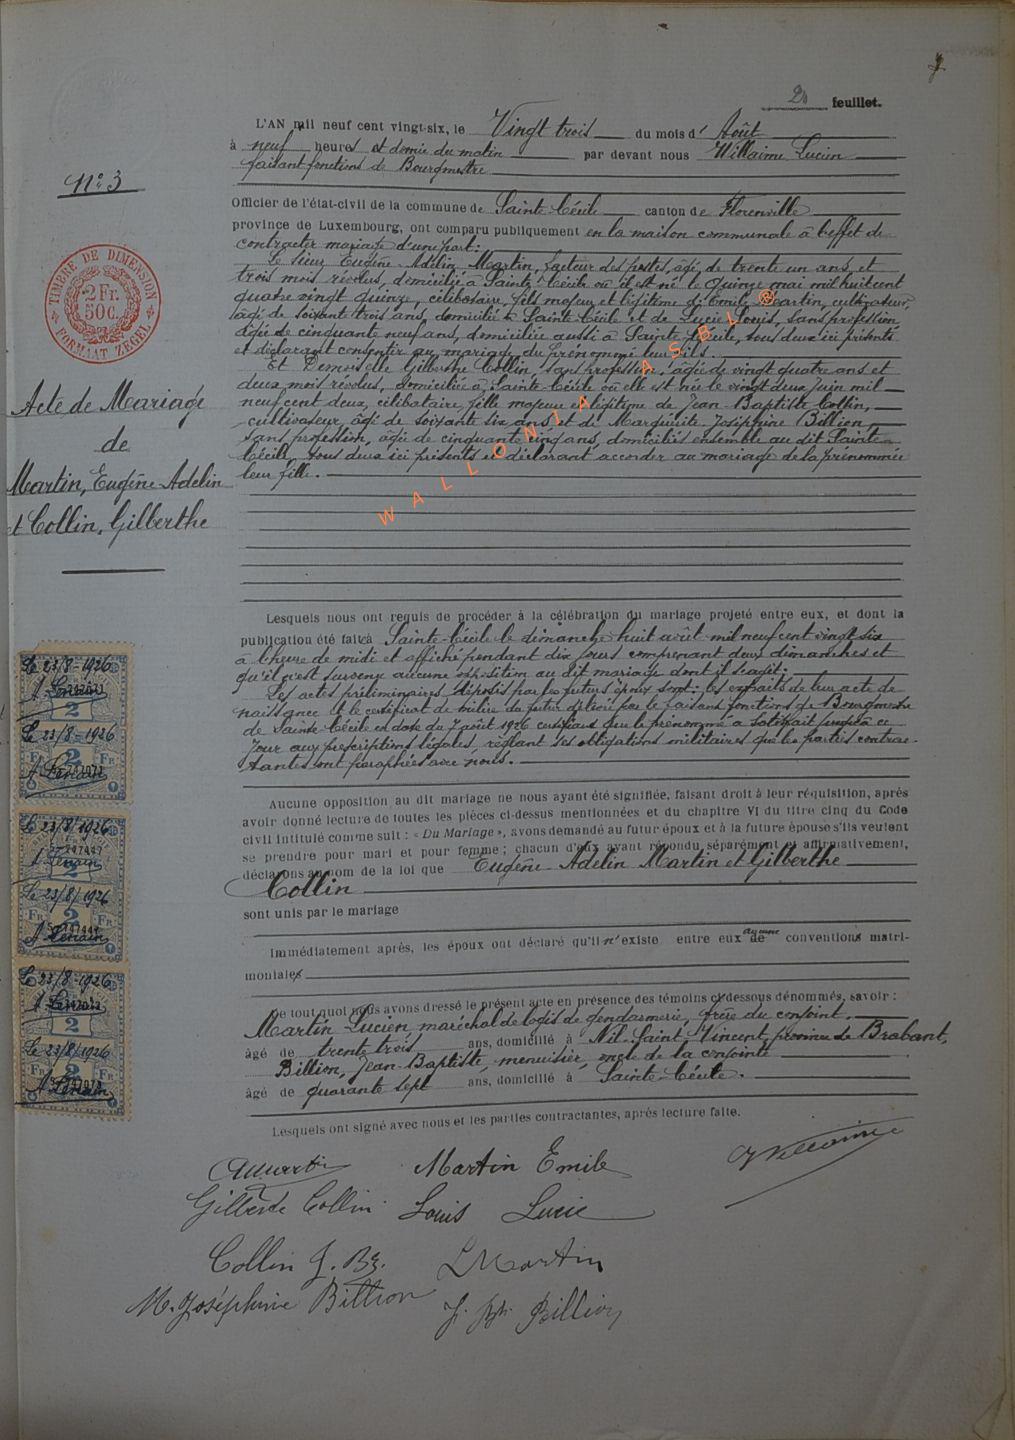 2e feuillet.
N°3
L'AN mil neuf cent vingt-six, le Vingt trois du mois d' Août
à neuf heures et demie du matin par devant nous Willaime Lucien
faisant fonctions de Bourgmestre
Officier de l'état-civil de la commune de Sainte-Cécile canton de Florenville
province de Luxembourg, ont comparu publiquement en la maison communale à l'effet de
contracter mariage d'une part:
Le sieur Eugène-Adelin Martin, facteur des postes, âgé de trente un ans et
trois mois révolus, domicilié à Sainte-Cécile où il est né le quinze mai mil huit cent
quatre vingt quinze, célibataire, fils majeur et légitime d'Emile Martin, cultivateur,
âgé de soixante trois ans, domicilié à Sainte-Cécile et de Lucie Louis, sans profession,
âgée de cinquante neuf ans, domiciliée aussi à Sainte-Cécile, tous deux ici présents
et déclarant consentir au mariage du prénommé leur fils.
Et Demoiselle Gilberthe Collin, sans profession, âgée de vingt quatre ans et
deux mois révolus, domiciliée à Sainte-Cécile où elle est née le vingt deux juin mil
neuf cent deux, célibataire, fille majeure et légitime de Jean-Baptiste Collin,
cultivateur, âgé de soixante six ans et de Marguerite-Joséphine Billion
sans profession, âgée de cinquante cinq ans, domiciliés ensemble au dit Sainte-
Cécile, tous deux ici présents et déclarant accorder au mariage de la prénommée
leur fille.
TIMBRE DE DIMENSION
2 Fr.
50C.
FORMAAT ZEGEL
Acte de Mariage
de
Martin, Eugène-Adelin
et Collin, Gilberthe
WALLONIA ASBL ®
Lesquels nous ont requis de procéder à la célébration du mariage projeté entre eux, et dont la
publication été faite à Sainte-Cécile le dimanche huit août mil neuf cent vingt six
à l'heure de midi et affiché pendant dix jours comprenant deux dimanches et
qu'il n'est survenu aucune opposition au dit mariage dont il s'agit;
Les actes préliminaires déposés par les futurs époux sont: les extraits de leur acte de
naissance et le certificat de milice du futur délivré par le faisant fonctions de Bourgmestre
de Sainte-Cécile en date du 7 août 1926 certifiant que le prénommé a satisfait jusqu'à ce
jour aux prescriptions légales, réglant ses obligations militaires que les parties contrac-
tantes ont paraphées avec nous.
Aucune opposition au dit mariage ne nous ayant été signifiée, faisant droit à leur réquisition, après
avoir donné lecture de toutes les pièces ci-dessus mentionnées et du chapitre VI du titre cinq du Code
civil intitulé comme suit : « Du Mariage », avons demandé au futur époux et à la future épouse s'ils veulent
se prendre pour mari et pour femme ; chacun d'eux ayant répondu séparément et affirmativement,
déclarons au nom de la loi que Eugène-Adelin Martin et Gilberthe
Collin
sont unis par le mariage
Immédiatement après, les époux ont déclaré qu'il n'existe entre eux aucune de conventions matri-
moniales
De tout quoi nous avons dressé le présent acte en présence des témoins ci-dessous dénommés, savoir :
Martin Lucien, maréchal de logis de gendarmerie, frère du conjoint.
âgé de trente trois ans, domicilié à Nil-Saint-Vincent, province de Brabant,
Billion, Jean-Baptiste, menuisier, oncle de la conjointe
âgé de quarante sept ans, domicilié à Sainte-Cécile.
Lesquels ont signé avec nous et les parties contractantes, après lecture faite.
Le 23/8-1926
2
Le 23/8-1926
Fr 2 Fr
Le 23/8/1926
2
Le 23/8/1926
Fr 2 Fr
Le 23/8-1926
2
Le 23/8/1926
2
Martin Emile
Gilberte Collin Louis Lucie
Collin J. Bte. LMartin
M. Joséphine Billion J. Bte Billion